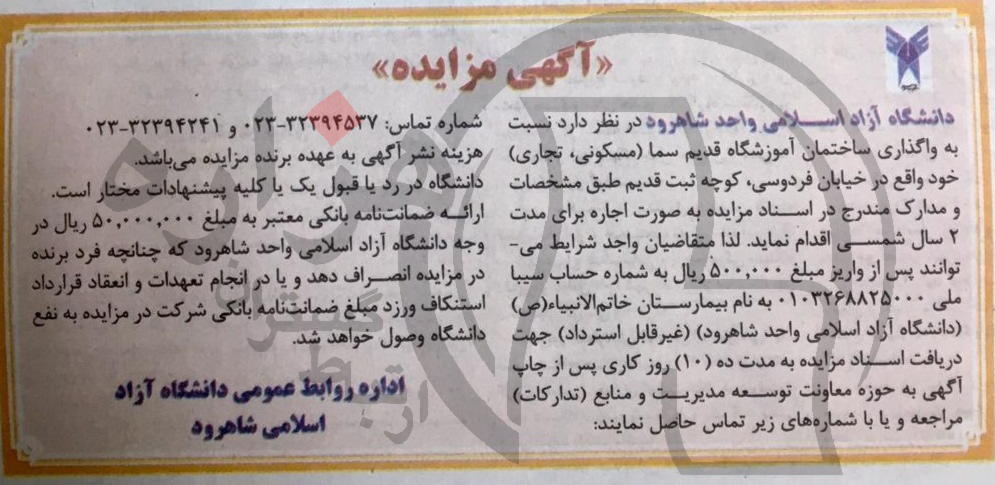 «آگهی مزایده»
دانشگاه آزاد اسلامی واحد شاهرود در نظر دارد نسبت
به واگذاری ساختمان آموزشگاه قدیم سما (مسکونی، تجاری)
خود واقع در خیابان فردوسی، کوچه ثبت قدیم طبق مشخصات
و مدارک مندرج در اسناد مزایده به صورت اجاره برای مدت
۲ سال شمسی اقدام نماید. لذا متقاضیان واجد شرایط می-
توانند پس از واریز مبلغ ۵۰۰,۰۰۰ ریال به شماره حساب سیبا
ملی ۰۱۰۳۲۶۸۸۲۵۰۰۰ به نام بیمارستان خاتم‌الانبیاء(ص)
(دانشگاه آزاد اسلامی واحد شاهرود) (غیرقابل استرداد) جهت
دریافت اسناد مزایده به مدت ده (۱۰) روز کاری پس از چاپ
آگهی به حوزه معاونت توسعه مدیریت و منابع (تدارکات)
مراجعه و یا با شماره‌های زیر تماس حاصل نمایند:
شماره تماس: ۳۲۳۹۴۵۳۷-۰۲۳ و ۳۲۳۹۴۲۴۱-۰۲۳
هزینه نشر آگهی به عهده برنده مزایده می‌باشد.
دانشگاه در رد یا قبول یک یا کلیه پیشنهادات مختار است.
ارائه ضمانت‌نامه بانکی معتبر به مبلغ ۵۰,۰۰۰,۰۰۰ ریال در
وجه دانشگاه آزاد اسلامی واحد شاهرود که چنانچه فرد برنده
در مزایده انصراف دهد و یا در انجام تعهدات و انعقاد قرارداد
استنکاف ورزد مبلغ ضمانت‌نامه بانکی شرکت در مزایده به نفع
دانشگاه وصول خواهد شد.
اداره روابط عمومی دانشگاه آزاد
اسلامی شاهرود